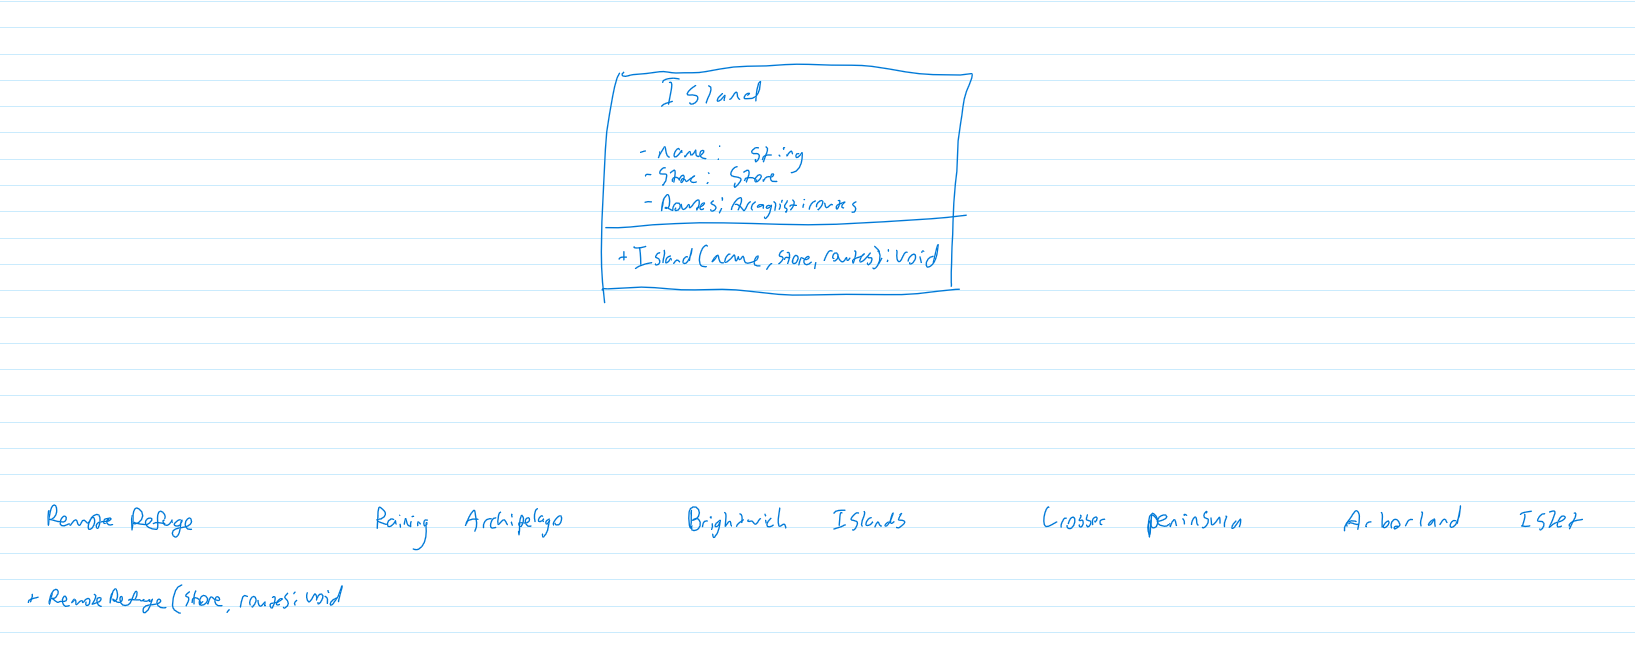 Island
- name: String
- Store: Store
- Routes: Arraylist:routes
+ Island(name, store, routes): void
Remote Refuge Raining Archipelago Brightwich Islands Crosser peninsula Arborland Islet
+ RemoteRefuge(store, routes: void